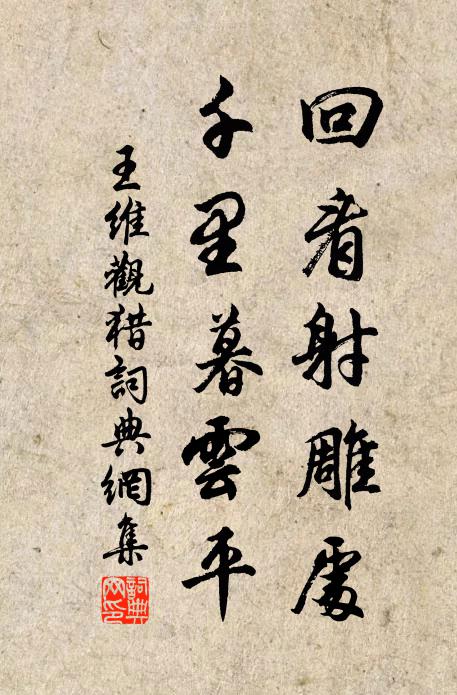 回看射雕處
千里暮雲平
王維觀猎詞典網集
詞典網印